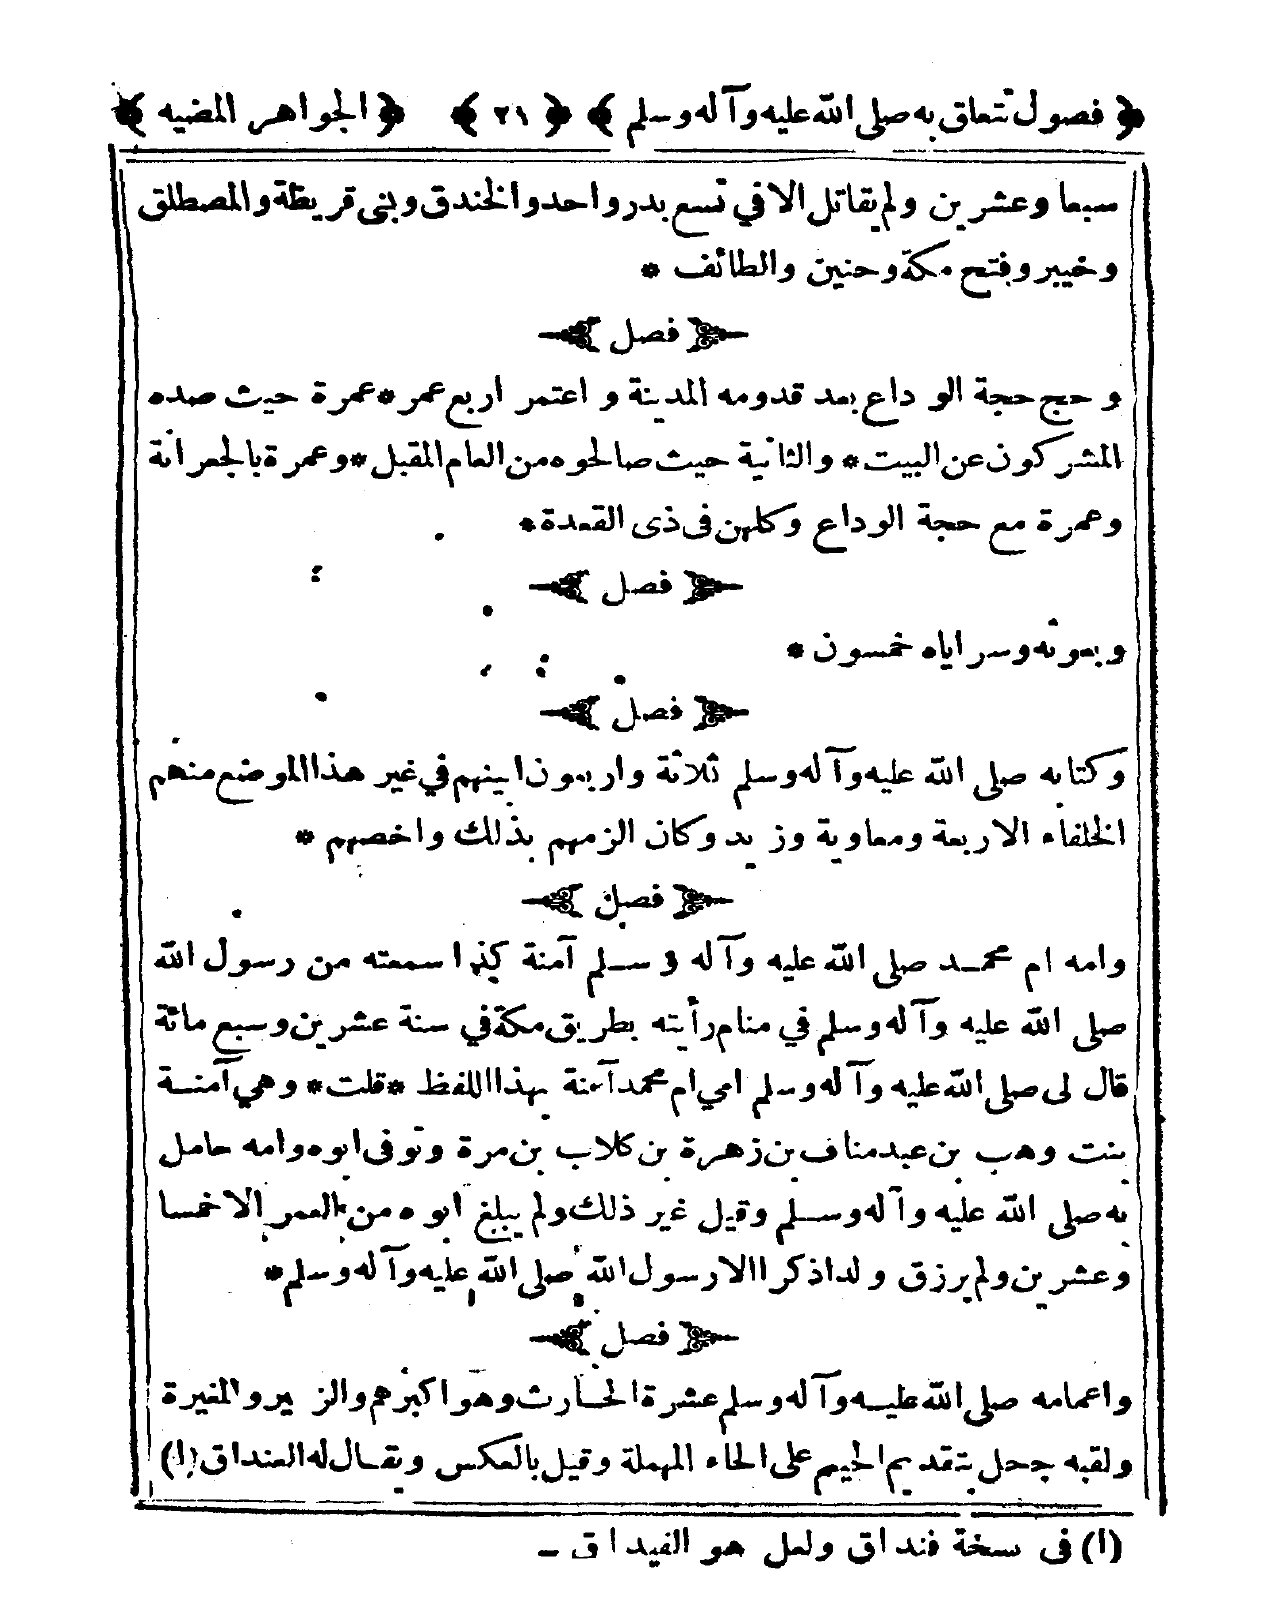 ﴿ فصول تتعلق به صلى الله عليه وآله وسلم ﴾ ﴿ ٢١ ﴾ ﴿ الجواهر المضيه ﴾
سبعا وعشرين ولم يقاتل الا في تسع بدر واحد والخندق وبنى قريظة والمصطلق
وخيبر وفتح مكة وحنين والطائف *
﴿ فصل ﴾
و حج حجة الو داع بعد قدومه المدينة و اعتمر اربع عمر * عمرة حيث صده
المشركون عن البيت * والثانية حيث صالحوه من العام المقبل * وعمرة بالجعرانة
وعمرة مع حجة الوداع وكلهن فى ذى القعدة *
﴿ فصل ﴾
وبعوثه وسراياه خمسون *
﴿ فصل ﴾
وكتابه صلى الله عليه وآله وسلم ثلاثة واربعون ابينهم في غير هذا الموضع منهم
الخلفاء الاربعة ومعاوية وزيد وكان الزمهم بذلك واخصهم *
﴿ فصل ﴾
وامه ام محمد صلى الله عليه وآله وسلم آمنة كذا سمعته من رسول الله
صلى الله عليه وآله وسلم في منام رأيته بطريق مكة في سنة عشرين وسبع مائة
قال لى صلى الله عليه وآله وسلم امي ام محمد آمنة بهذا اللفظ * قلت * وهي آمنة
بنت وهب بن عبد مناف بن زهرة بن كلاب بن مرة وتوفى ابوه وامه حامل
به صلى الله عليه وآله وسلم وقيل غير ذلك ولم يبلغ ابوه من العمر الا خمسا
وعشرين ولم يرزق ولدا ذكرا الا رسول الله صلى الله عليه وآله وسلم *
﴿ فصل ﴾
واعمامه صلى الله عليه وآله وسلم عشرة الحارث وهو اكبرهم والزبير والمغيرة
ولقبه جحل بتقديم الجيم على الحاء المهملة وقيل بالعكس ويقال له العنداق (١)
(١) فى نسخة فنداق ولعل هو الفيداق ــ